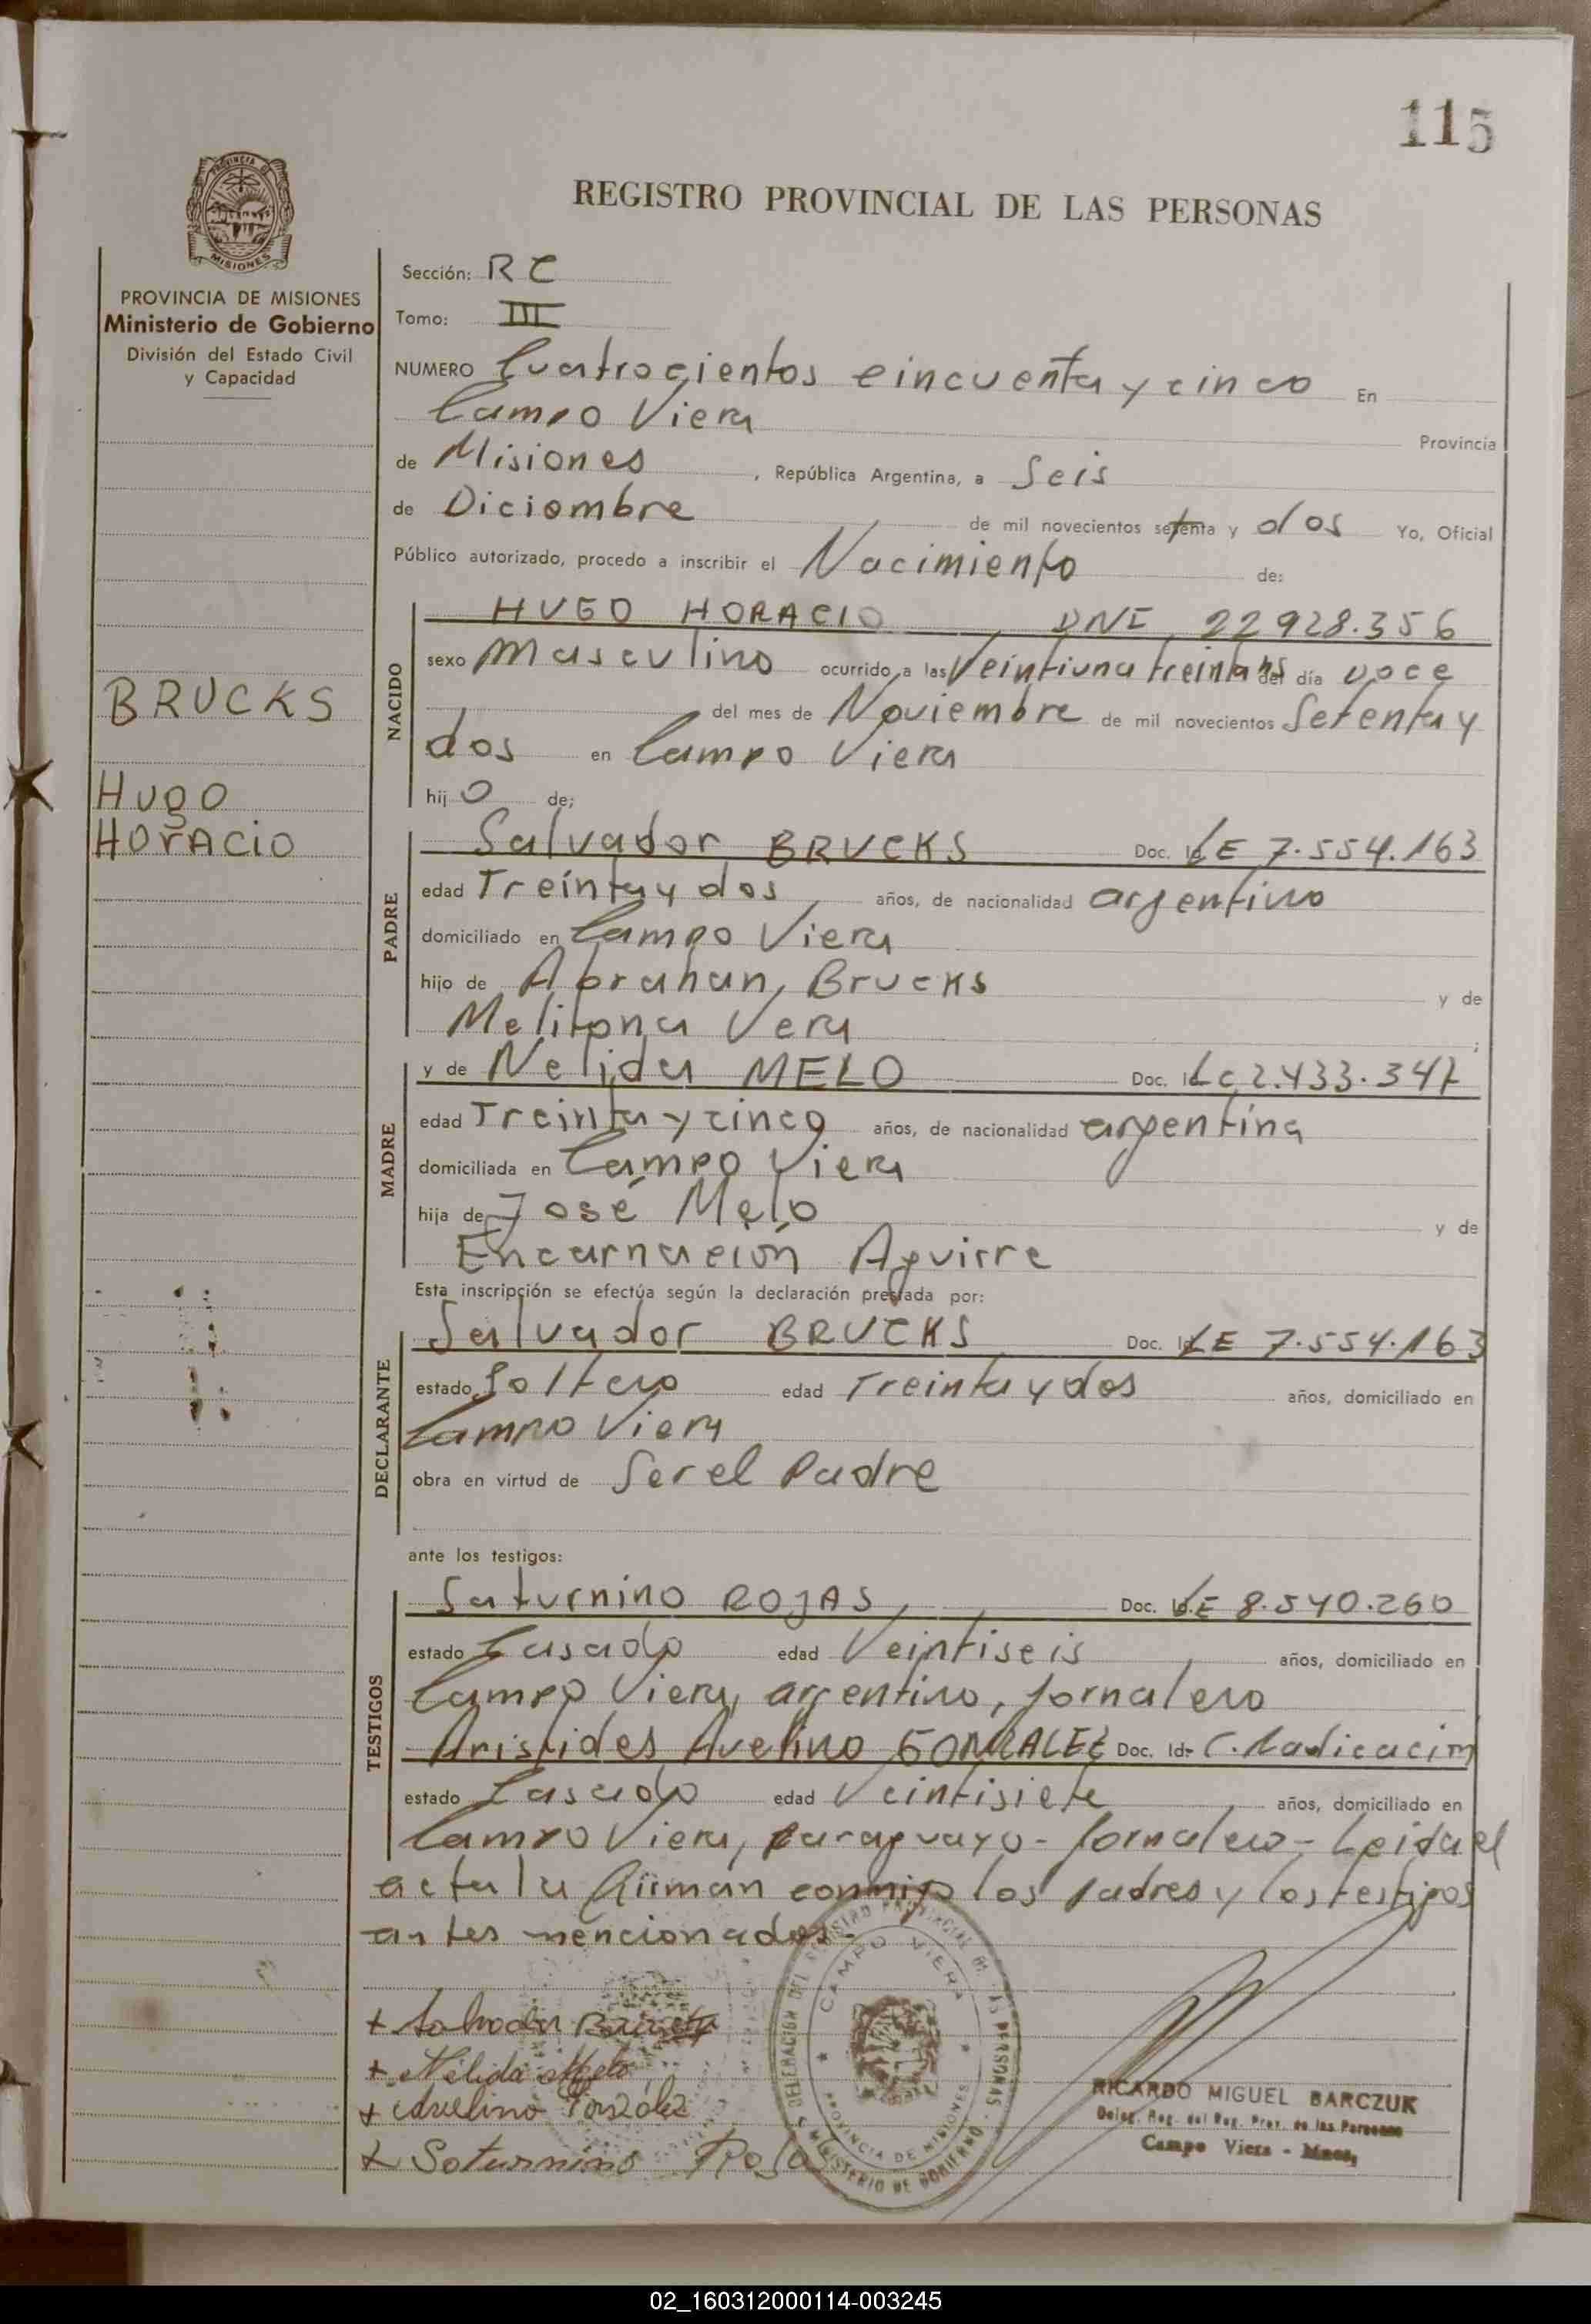 115
REGISTRO PROVINCIAL DE LAS PERSONAS
PROVINCIA DE
MISIONES
PROVINCIA DE MISIONES
Ministerio de Gobierno
División del Estado Civil
y Capacidad
BRUCKS
Hugo
HOrACiO
Sección: RC
Tomo: III
NUMERO Cuatrocientos cincuenta y cinco En
Campo Viera Provincia
de Misiones, República Argentina, a Seis
de Diciembre de mil novecientos setenta y dos Yo, Oficial
Público autorizado, procedo a inscribir el Nacimiento de:
NACIDO
HUGO HORACIO, DNI 22928.356
sexo Masculino ocurrido a las Veintiuna treinta hs del día doce
del mes de Noviembre de mil novecientos Setenta y
dos en Campo Viera
hij o de;
PADRE
Salvador BRUCKS Doc. Id LE 7.554.163
edad Treinta y dos años, de nacionalidad argentino
domiciliado en Campo Viera
hijo de Abrahan Brucks y de
Melitona Vera;
MADRE
y de Nelida MELO Doc. Id LC 2.433.347
edad Treinta y cinco años, de nacionalidad argentina
domiciliada en Campo Viera
hija de José Melo y de
Encarnación Aguirre
Esta inscripción se efectúa según la declaración prestada por:
DECLARANTE
Salvador BRUCKS Doc. Id LE 7.554.163
estado Soltero edad Treinta y dos años, domiciliado en
Campo Viera
obra en virtud de Ser el Padre
ante los testigos:
TESTIGOS
Saturnino ROJAS, Doc. Id. LE 8.540.260
estado Casado edad Veintiseis años, domiciliado en
Campo Viera, argentino, jornalero
Aristides Avelino GONZALEZ Doc. Id. C. Radicación
estado Casado edad Veintisiete años, domiciliado en
Campo Viera, paraguayo - jornalero - Leida el
acta la firman conmigo los padres y los testigos
antes mencionados.-
DELEGACION DEL REGISTRO PROVINCIAL DE LAS PERSONAS
CAMPO VIERA
PROVINCIA DE MISIONES
MINISTERIO DE GOBIERNO
+ Salvador
+ Nélida Melo
+ Avelino González
+ Saturnino Rojas
RICARDO MIGUEL BARCZUK
Deleg. Reg. del Reg. Prov. de las Personas
Campo Viera - Mnes,
02_160312000114-003245